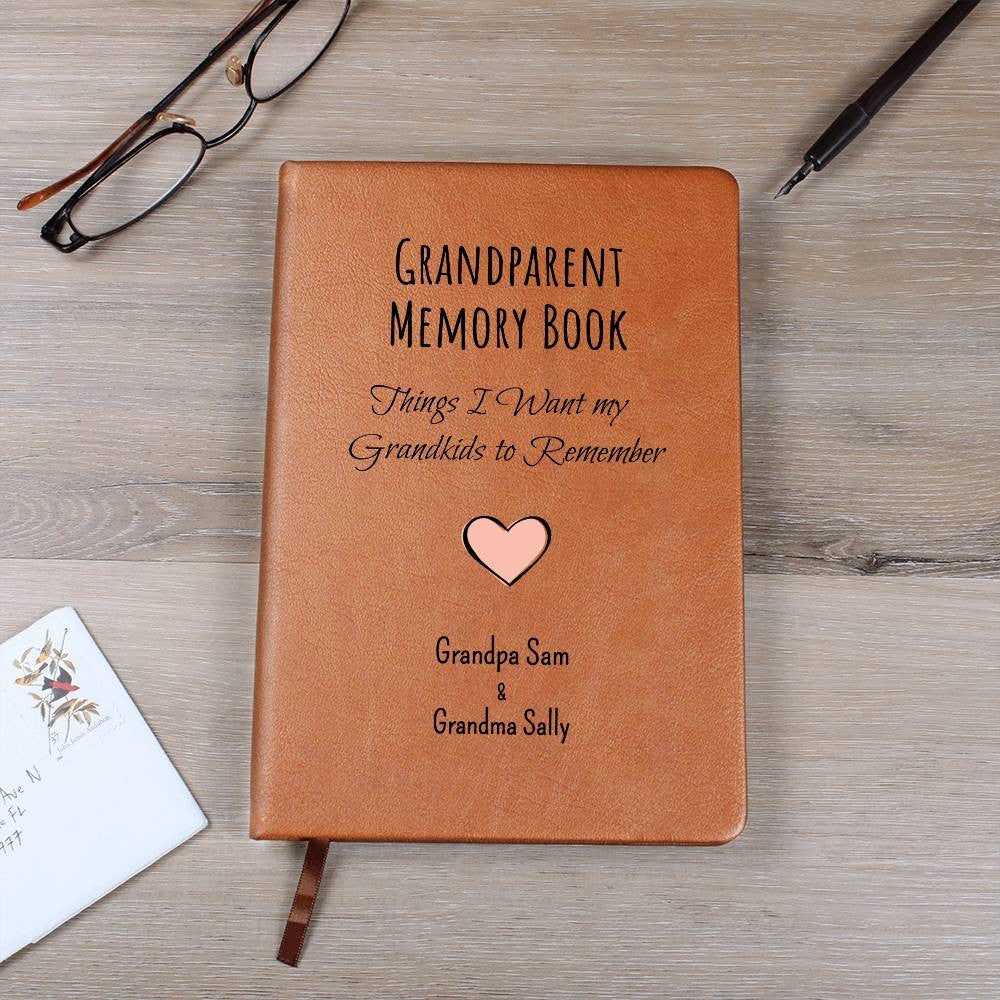 Grandparent
Memory Book
Things I Want my
Grandkids to Remember
Grandpa Sam
&
Grandma Sally
37
John James Audubon
Ave N
FL
977